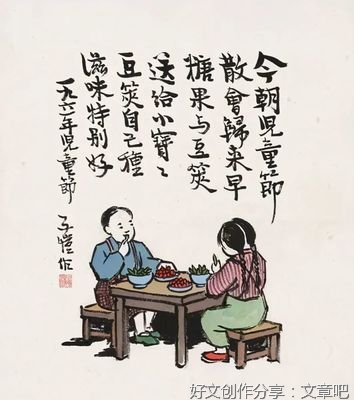 今朝児童節
散會歸来早
糖果与豆莢
送给小寶〻
豆莢自己種
滋味特别好
一九六二年児童節
子愷作
好文创作分享：文章吧